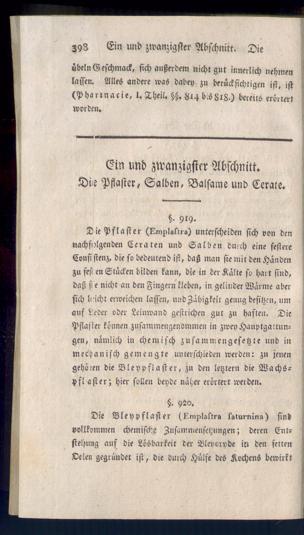 398 Ein und zwanzigster Abschnitt. Die
übeln Geschmack, sich außerdem nicht gut innerlich nehmen
lassen. Alles andere was dabey zu berücksichtigen ist, ist
(Pharmacie, I. Theil. §§. 814 bis 818.) bereits erörtert
worden.
Ein und zwanzigster Abschnitt.
Die Pflaster, Salben, Balsame und Cerate.
§. 919.
Die Pflaster (Emplastra) unterscheiden sich von den
nachfolgenden Ceraten und Salben durch eine festere
Consistenz, die so bedeutend ist, daß man sie mit den Händen
zu festen Stücken bilden kann, die in der Kälte so hart sind,
daß sie nicht an den Fingern kleben, in gelinder Wärme aber
sich leicht erweichen lassen, und Zähigkeit genug besitzen, um
auf Leder oder Leinwand gestrichen gut zu haften. Die
Pflaster können zusammengenommen in zwey Hauptgattun-
gen, nämlich in chemisch zusammengesetzte und in
mechanisch gemengte unterschieden werden: zu jenen
gehören die Bleypflaster, zu den letztern die Wachs-
pflaster; hier sollen beyde näher erörtert werden.
§. 920.
Die Bleypflaster (Emplastra saturnina) sind
vollkommen chemische Zusammensetzungen; deren Ent-
stehung auf die Lösbarkeit der Bleyoxyde in den fetten
Oelen gegründet ist, die durch Hülfe des Kochens bewirkt